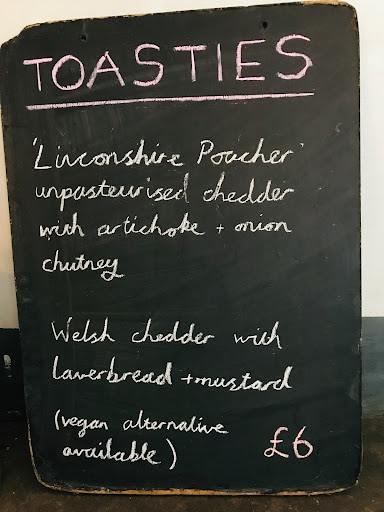 TOASTIES
'Linconshire Poacher'
unpasteurised chedder
with artichoke + onion
chutney
Welsh chedder with
Laverbread + mustard
(vegan alternative
available)
£6